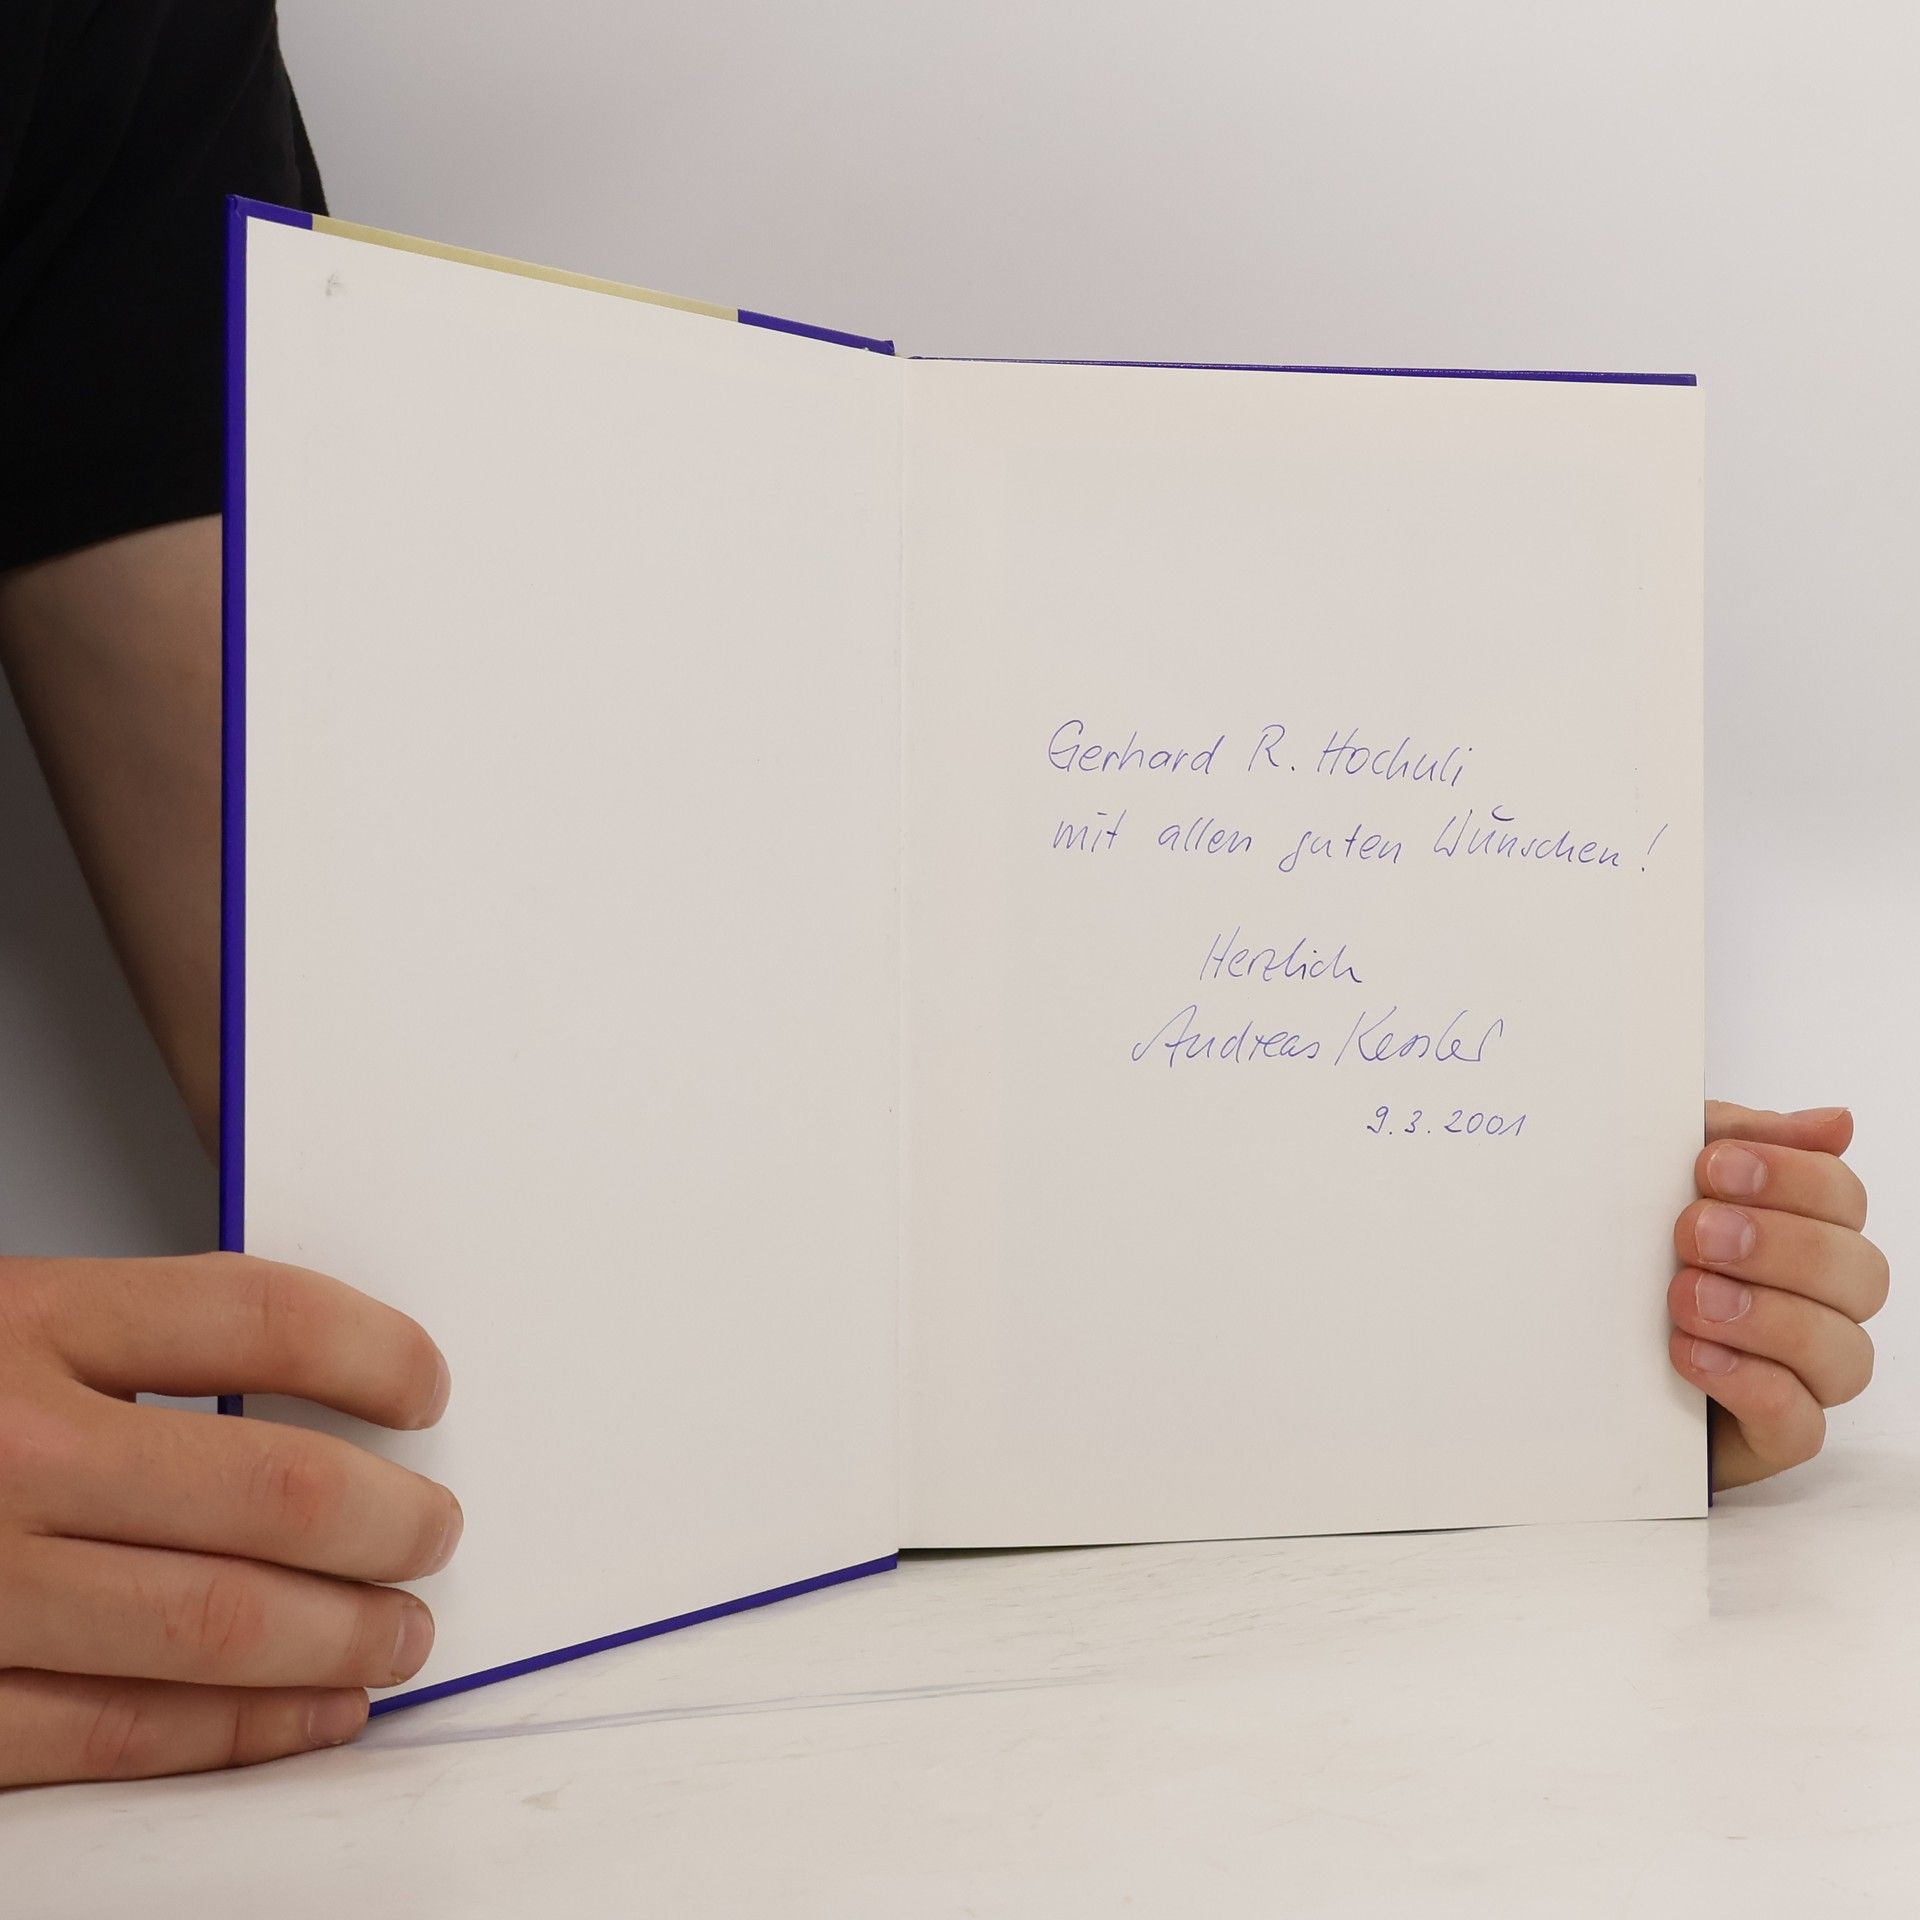 Gerhard R. Hochuli
mit allen guten Wünschen!
Herzlich
Andreas Kessler
9.3.2001